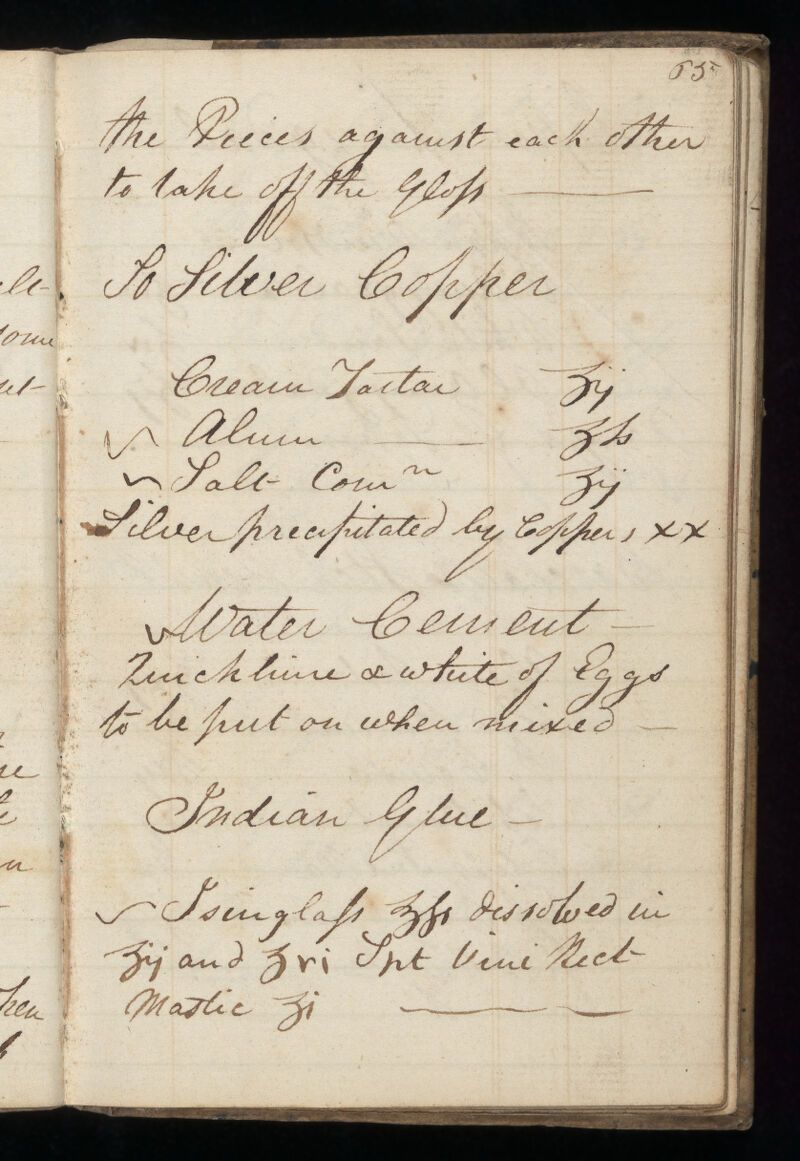 65
the Pieces against each other
to take off the Gloſs
To Silver Copper
Cream Tartar ʒij
Alum ʒſs
Salt Comn ʒij
Silver precipitated by Copper, xx
Water Cement
Quicklime & white of Eggs
to be put on when mixed
Indian Glue
Isinglaſs ʒſs dissolved in
ʒij and ʒvi Spt Vini Rect
Mastic ʒi
some